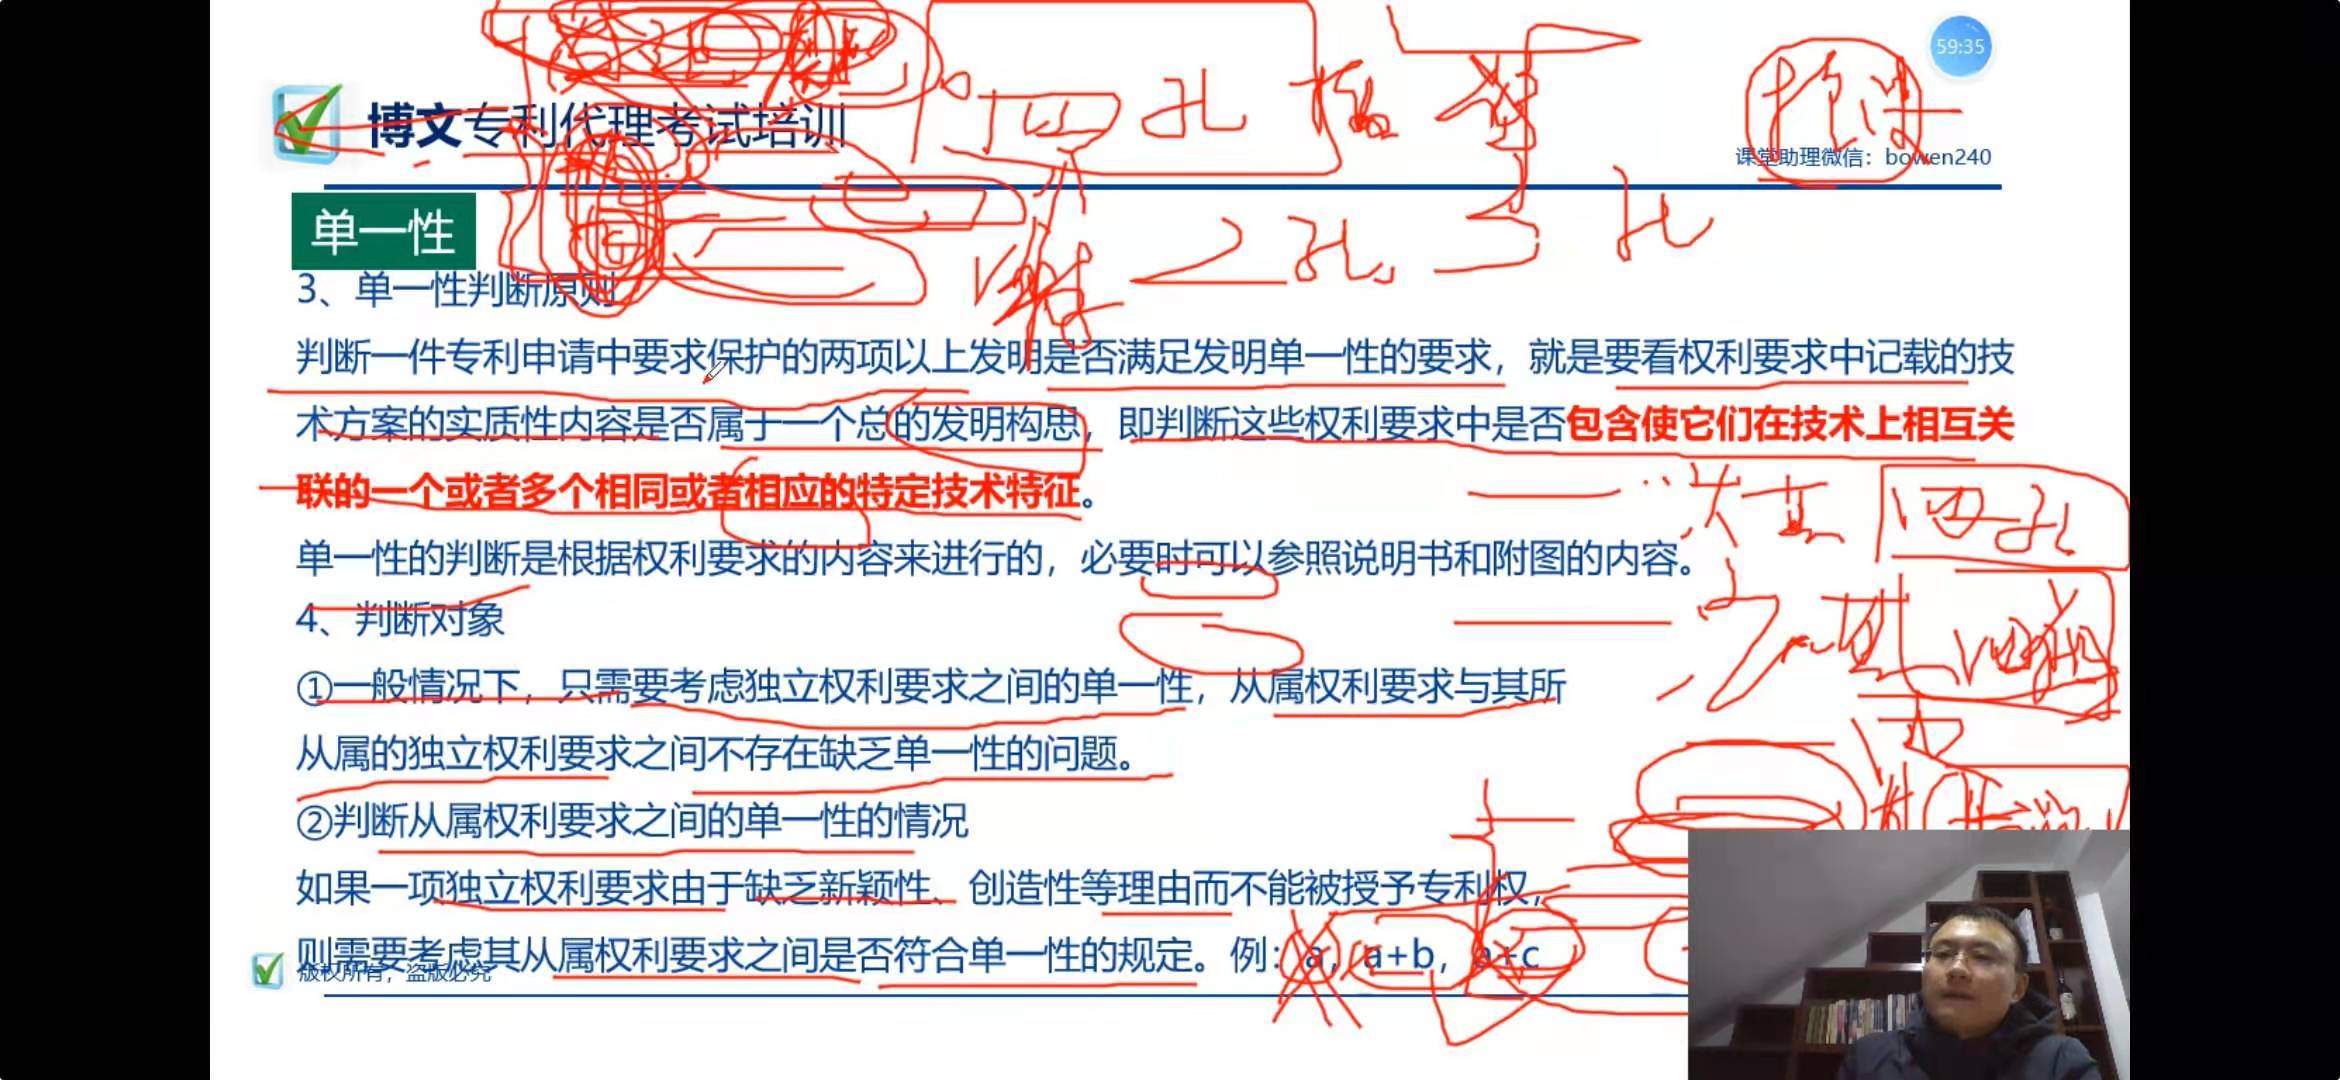 59:35
博文专利代理考试培训
四孔插
课堂助理微信：bowen240
二孔 三孔
单一性
3、单一性判断原则
判断一件专利申请中要求保护的两项以上发明是否满足发明单一性的要求，就是要看权利要求中记载的技
术方案的实质性内容是否属于一个总的发明构思，即判断这些权利要求中是否包含使它们在技术上相互关
联的一个或者多个相同或者相应的特定技术特征。
四孔
单一性的判断是根据权利要求的内容来进行的，必要时可以参照说明书和附图的内容。
4、判断对象
①一般情况下，只需要考虑独立权利要求之间的单一性，从属权利要求与其所
从属的独立权利要求之间不存在缺乏单一性的问题。
②判断从属权利要求之间的单一性的情况
如果一项独立权利要求由于缺乏新颖性、创造性等理由而不能被授予专利权，
则需要考虑其从属权利要求之间是否符合单一性的规定。例：a，a+b，a+c
版权所有，盗版必究